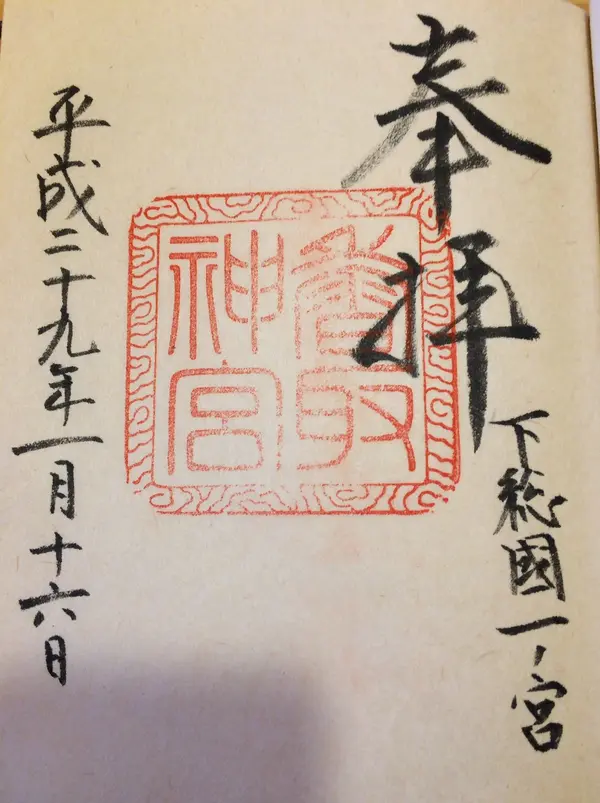 奉拝
下総國一ノ宮
香取
神宮
平成二十九年一月十六日